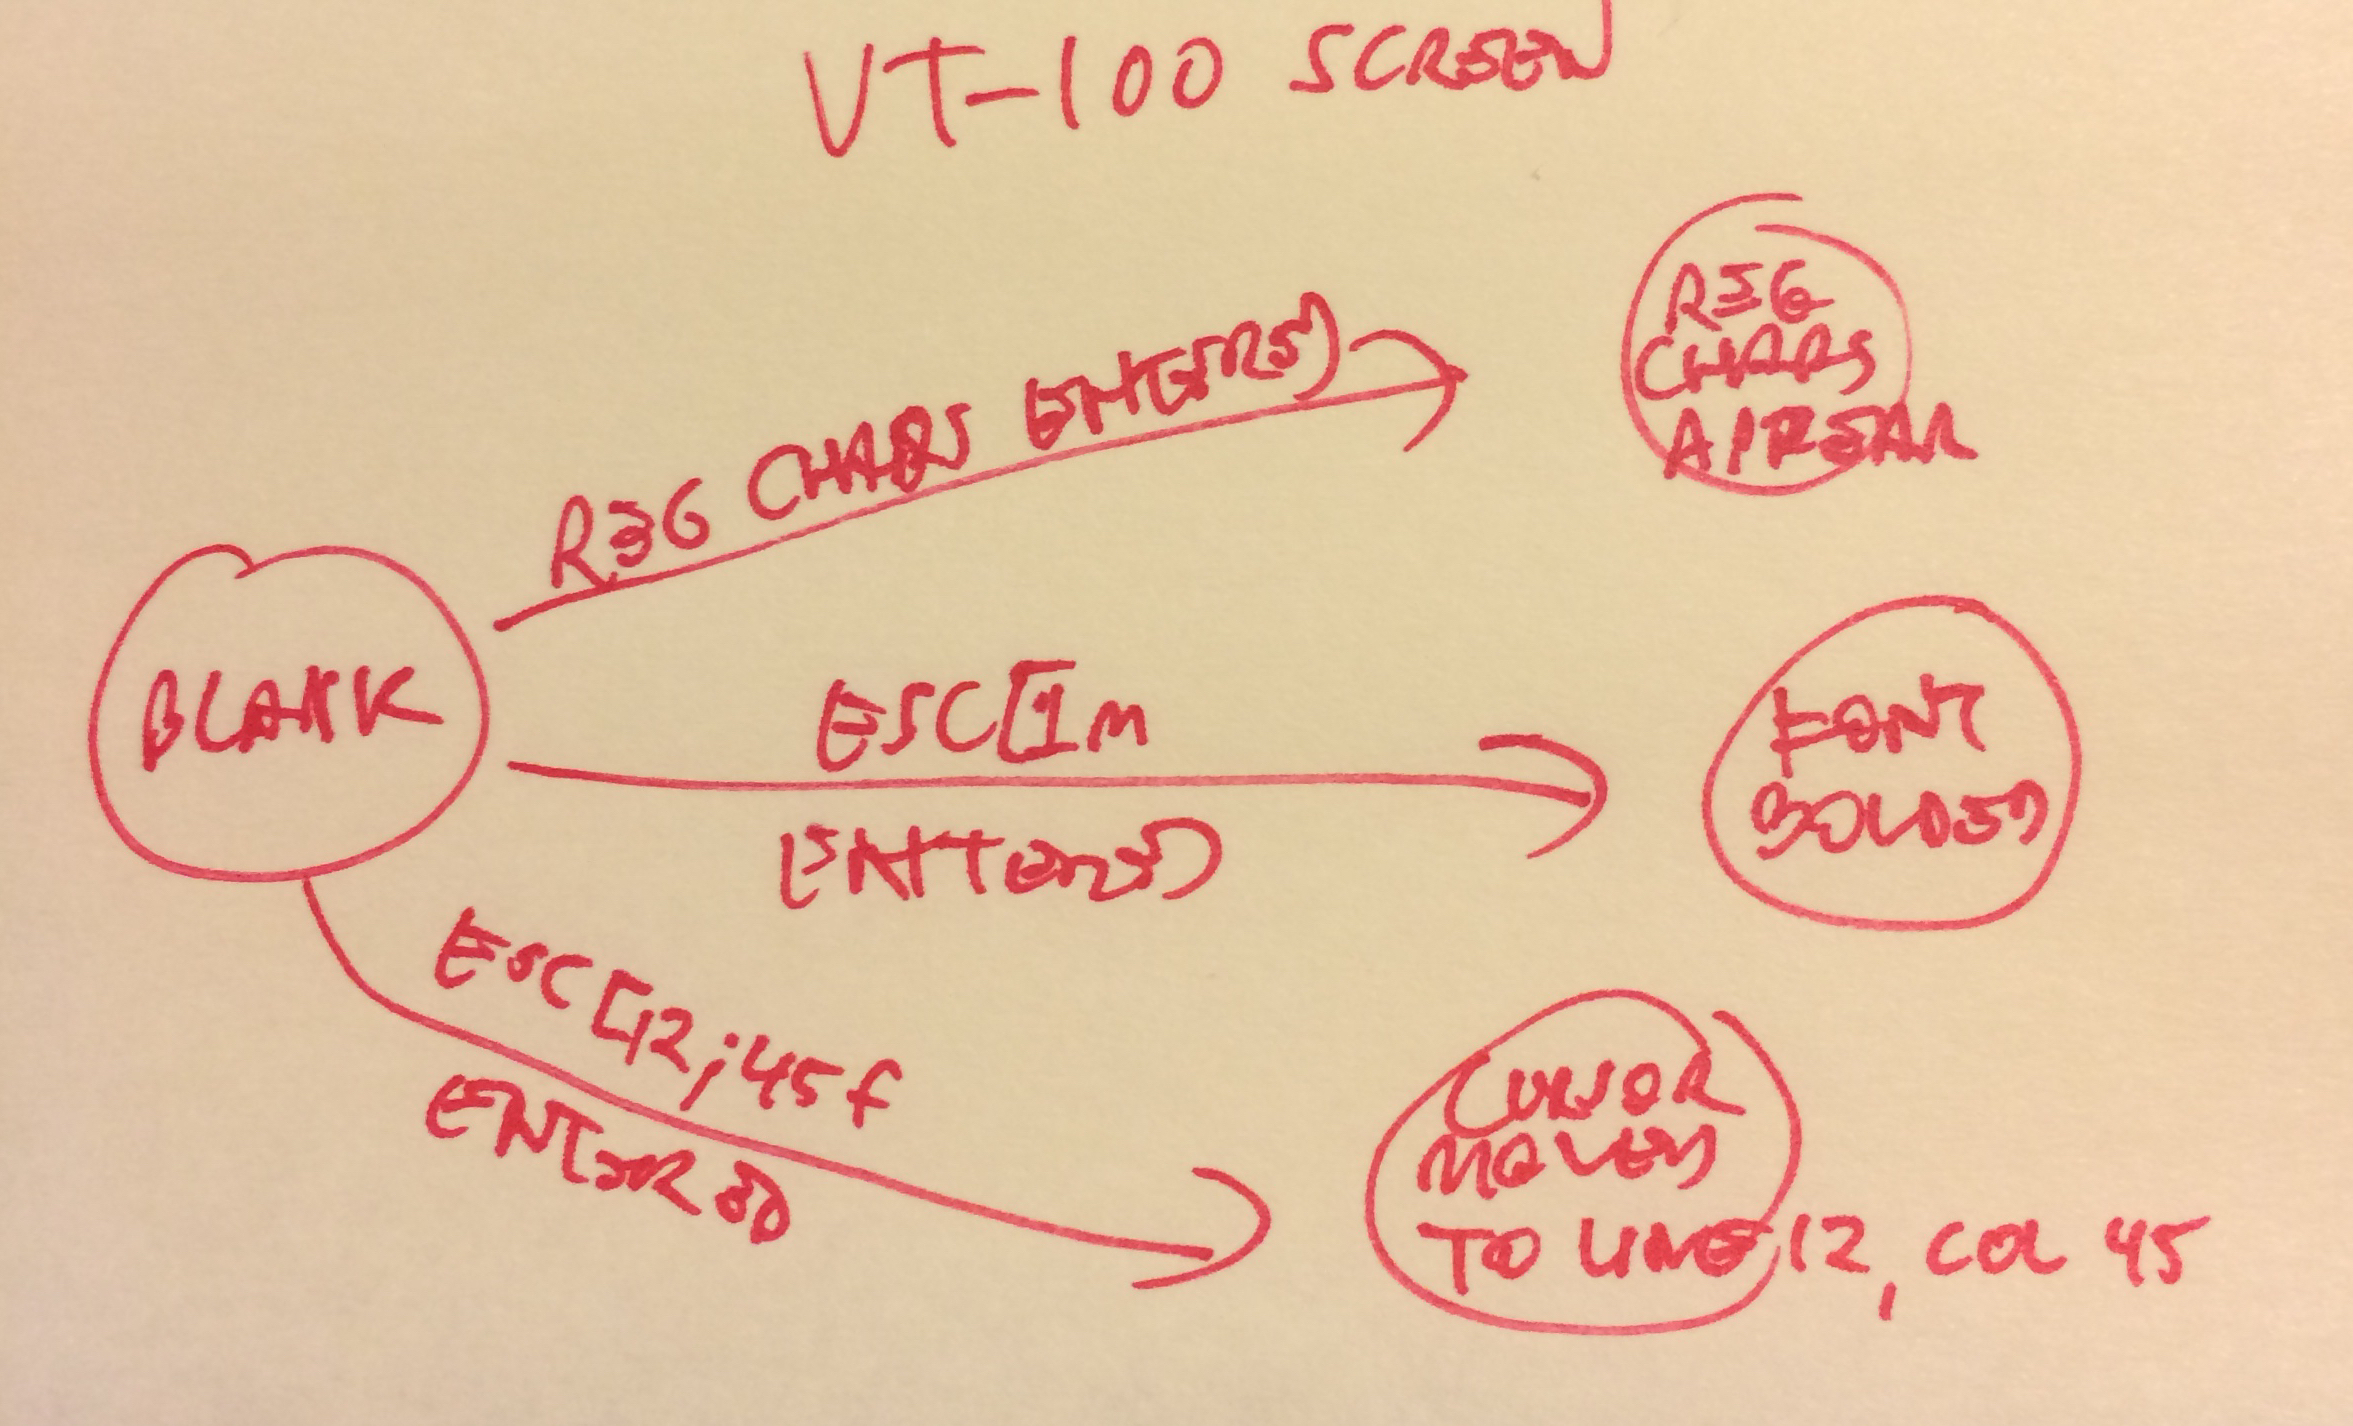 VT-100 SCREEN
REG CHARS ENTERED
REG
CHARS
APPEAR
BLANK
ESC[1m
ENTERED
FONT
BOLDED
ESC[12;45f
ENTERED
CURSOR
MOVED
TO LINE 12, COL 45